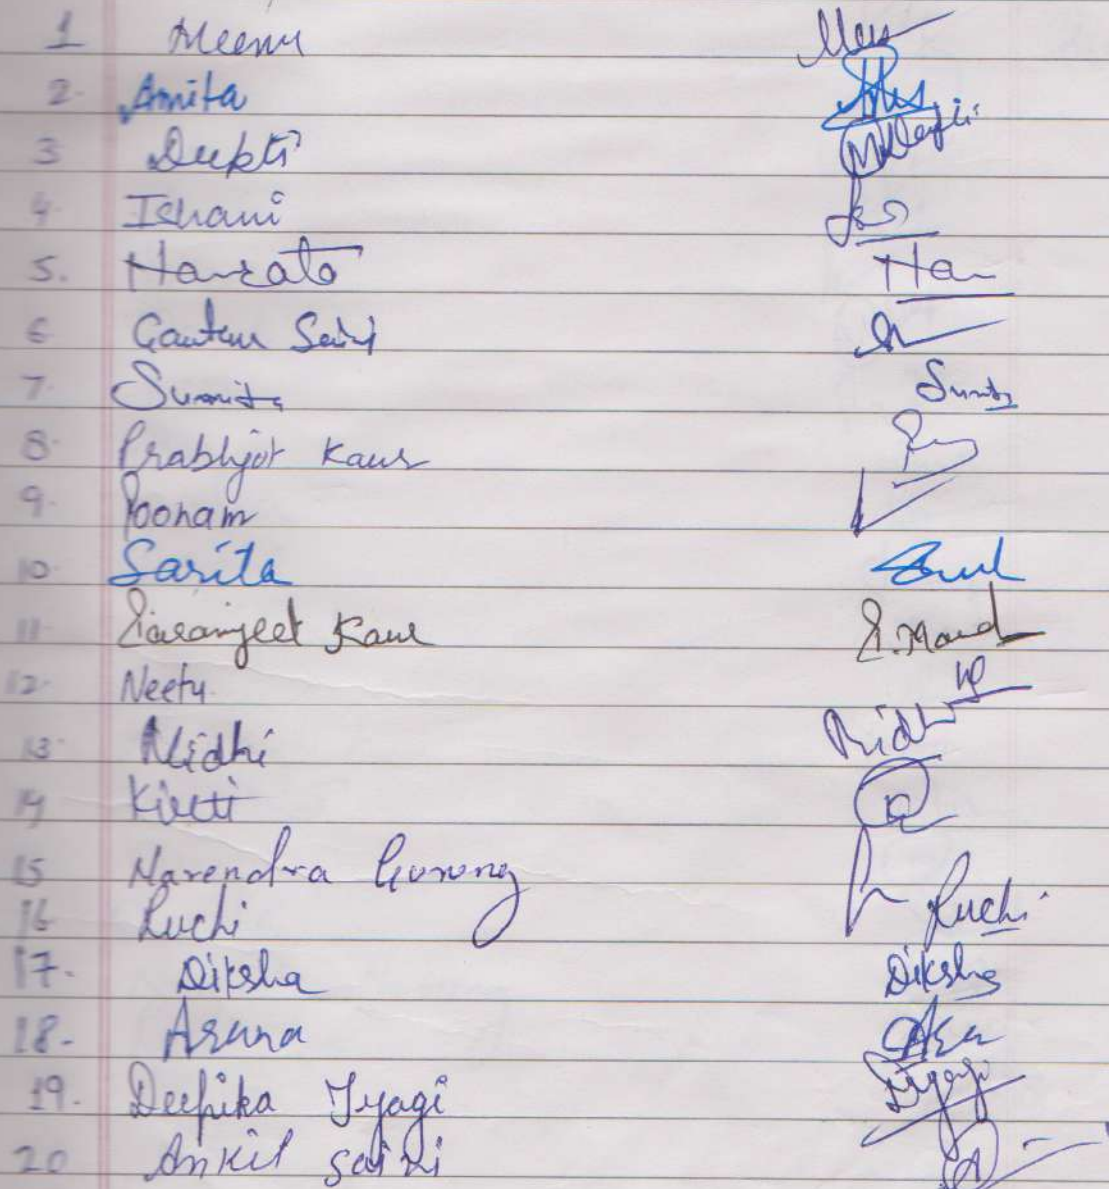 1 Meenu
2. Amita
3 Deepti
4. Ishani
5. Hansata Han
6 Gautam Saini
7. Sumita Sumita
8. Prabhjot Kaur
9. Poonam
10. Sarita
11. Kaur
12. Neetu
13. Nidhi Nidhi
14 Kirti
15 Narendra Gurung
16 Ruchi Ruchi
17. Diksha Diksha
18. Aruna
19. Deepika Tyagi Tyagi
20 Ankit Saini